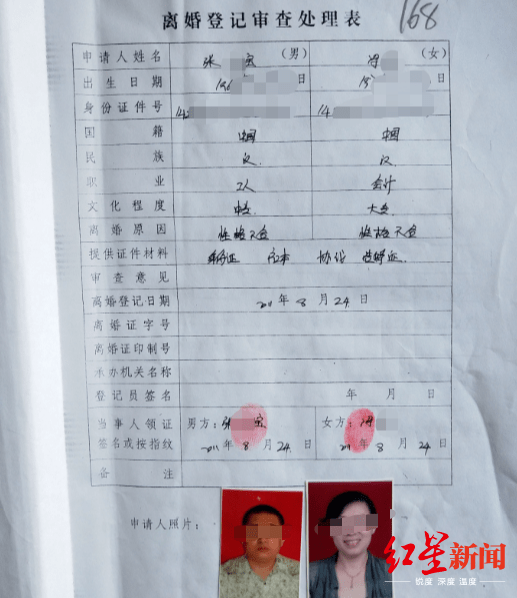 离婚登记审查处理表
168
申请人姓名 张 宝 (男) 冯 (女)
出生日期 196 日 19 日
身份证件号 142 14
国籍 中国 中国
民族 汉 汉
职业 工人 会计
文化程度 中专 大专
离婚原因 性格不合 性格不合
提供证件材料 身份证 户口本 协议 结婚证
审查意见
离婚登记日期 2011年8月24日
离婚证字号
离婚证印制号
承办机关名称
登记员签名 年 月 日
当事人领证 男方:张 宝 女方:冯
签名或按指纹 2011年8月24日 2011年8月24日
备注
申请人照片:
红星新闻
锐度 深度 温度